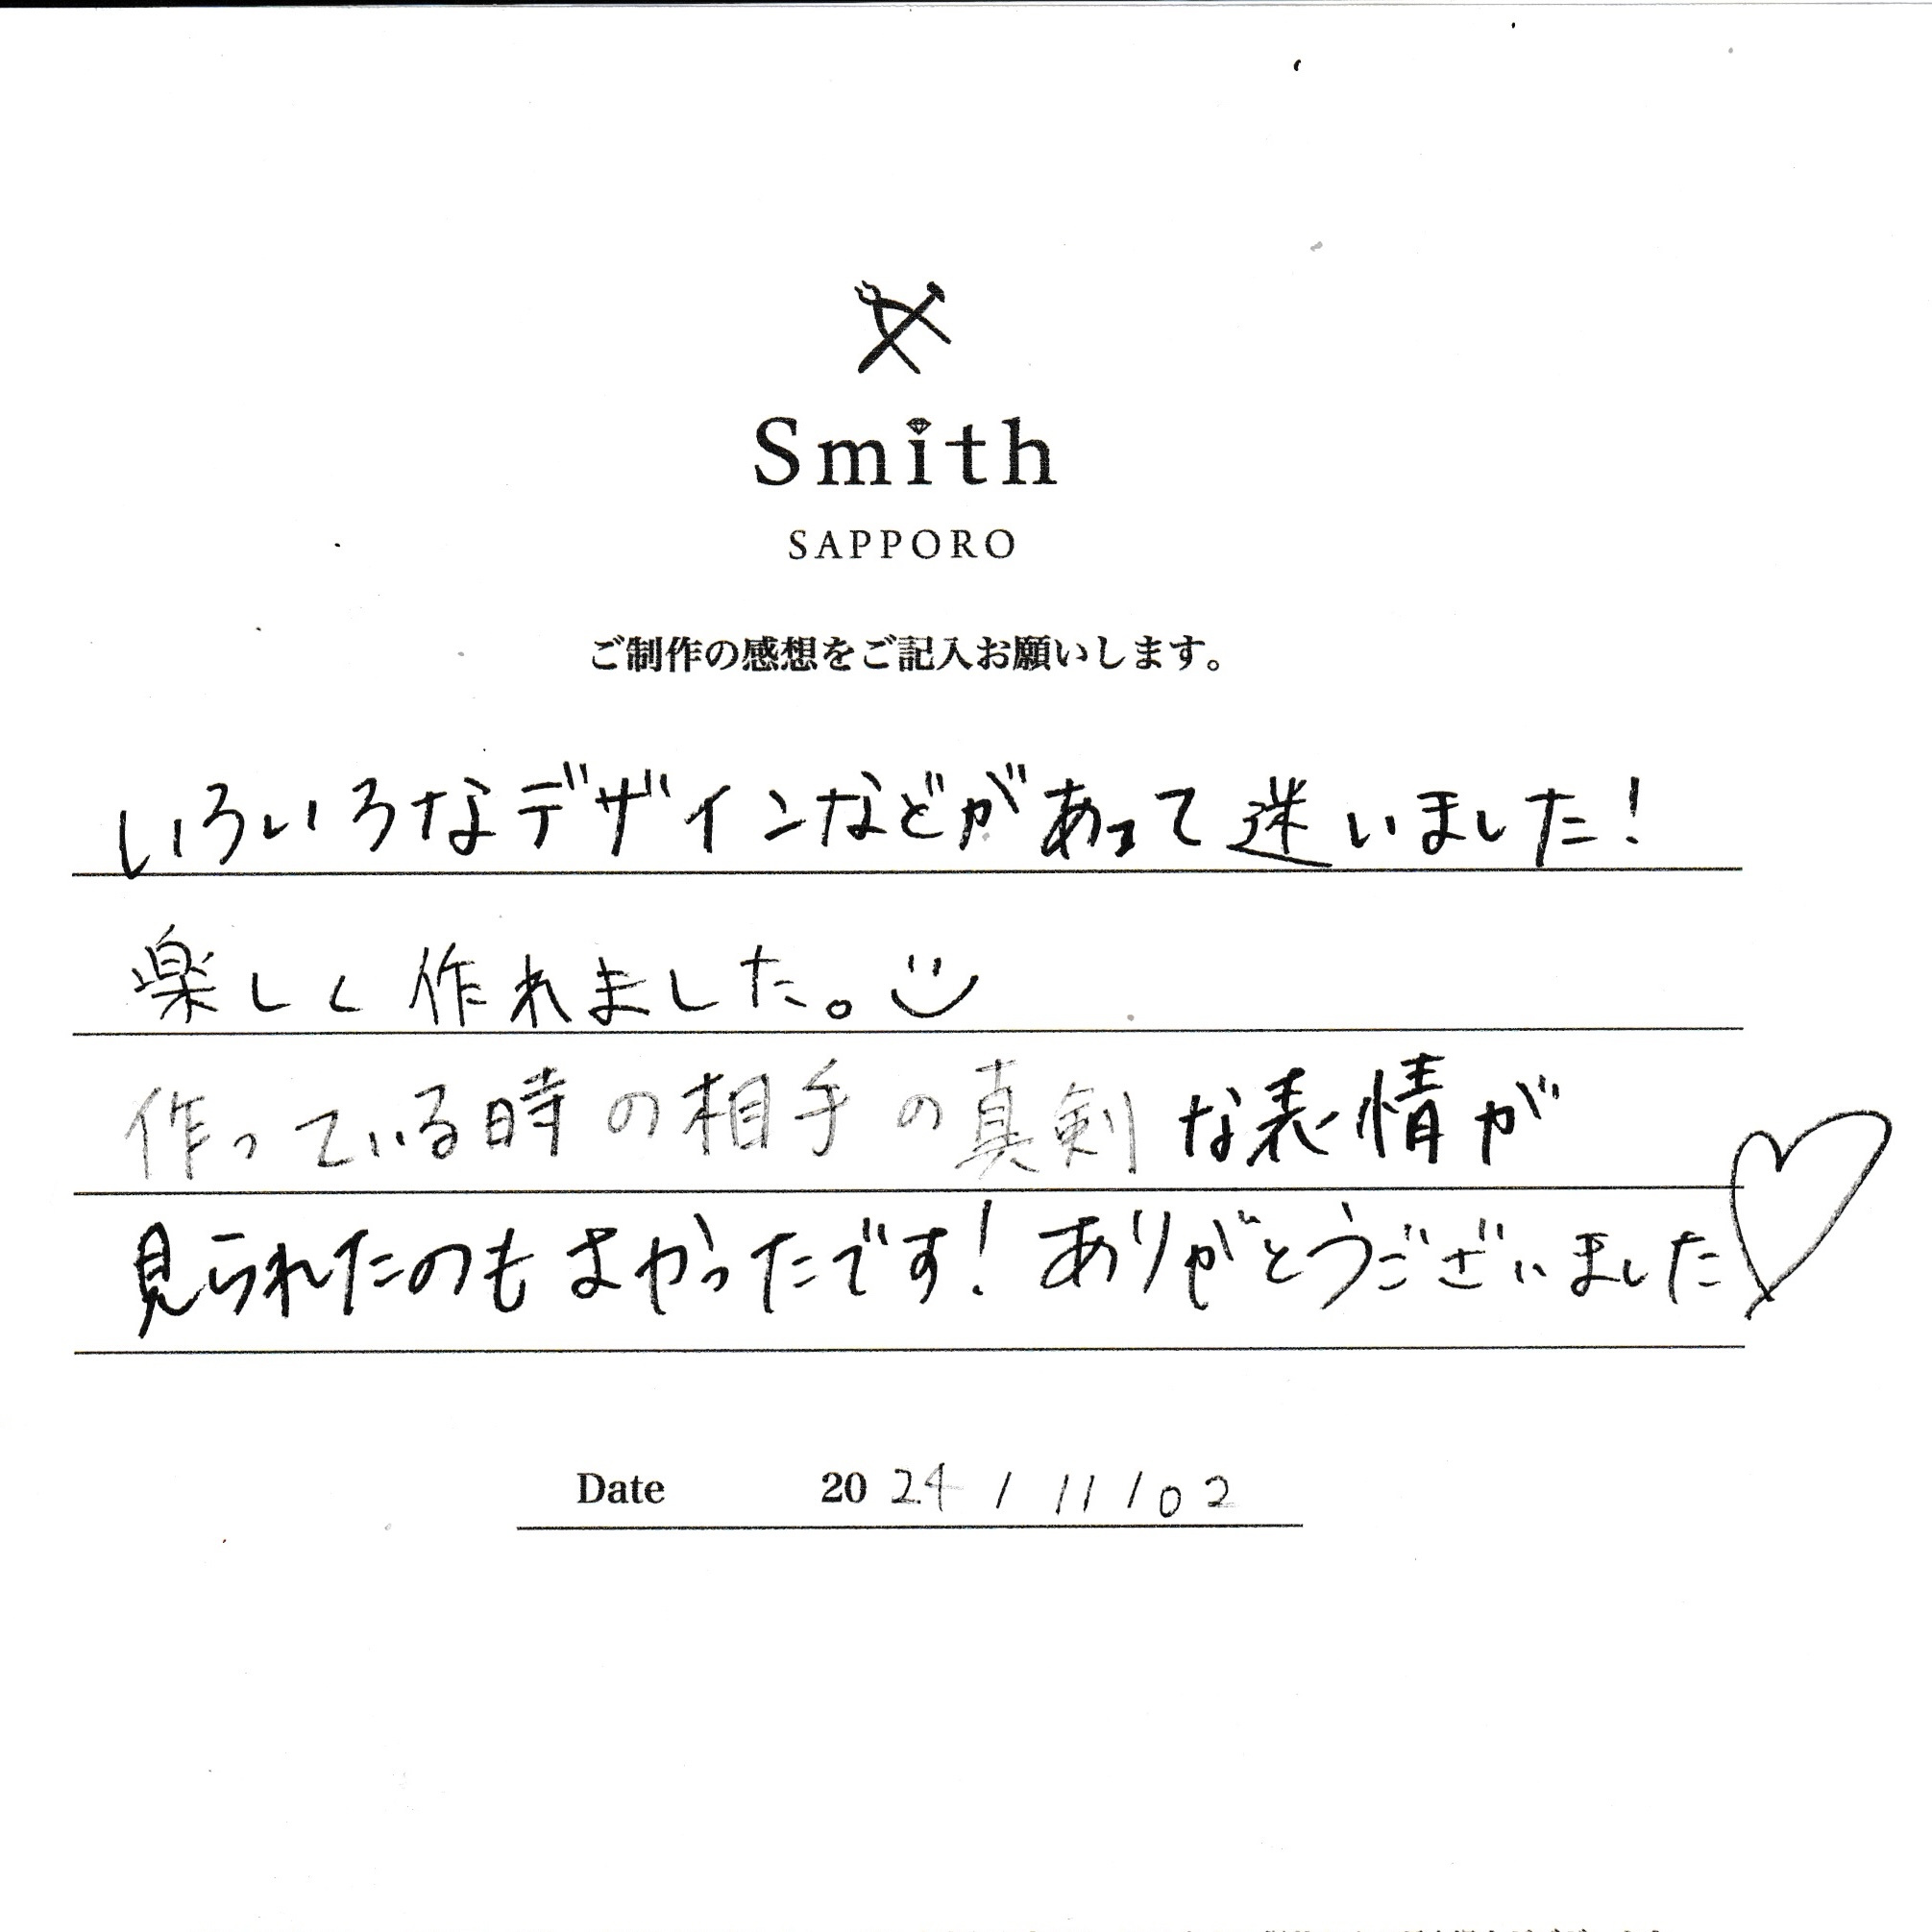 Smith
SAPPORO
ご制作の感想をご記入お願いします。
いろいろなデザインなどがあって迷いました!
楽しく作れました。
作っている時の相手の真剣な表情が
見られたのもよかったです!ありがとうございました♡
Date 2024/11/02